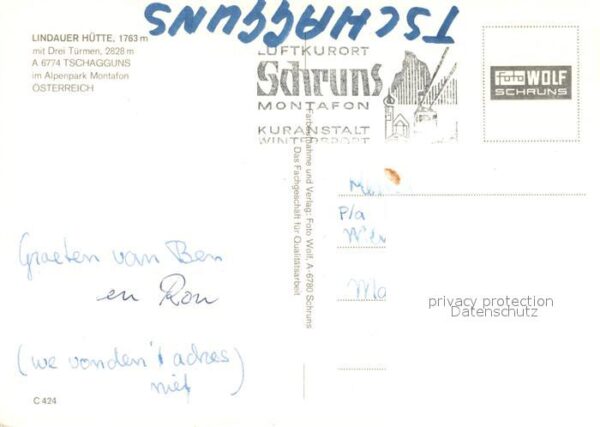 TSCHAGGUNS
LINDAUER HÜTTE, 1763 m
mit Drei Türmen, 2828 m
A 6774 TSCHAGGUNS
im Alpenpark Montafon
ÖSTERREICH
LUFTKURORT
Schruns
MONTAFON
KURANSTALT
WINTERSPORT
Foto WOLF
SCHRUNS
Farbaufnahme und Verlag: Foto Wolf, A-6780 Schruns
Das Fachgeschäft für Qualitätsarbeit
P/a
Ma
Groeten van Ben
en Ron
(we vonden 't adres
niet)
privacy protection
Datenschutz
C 424